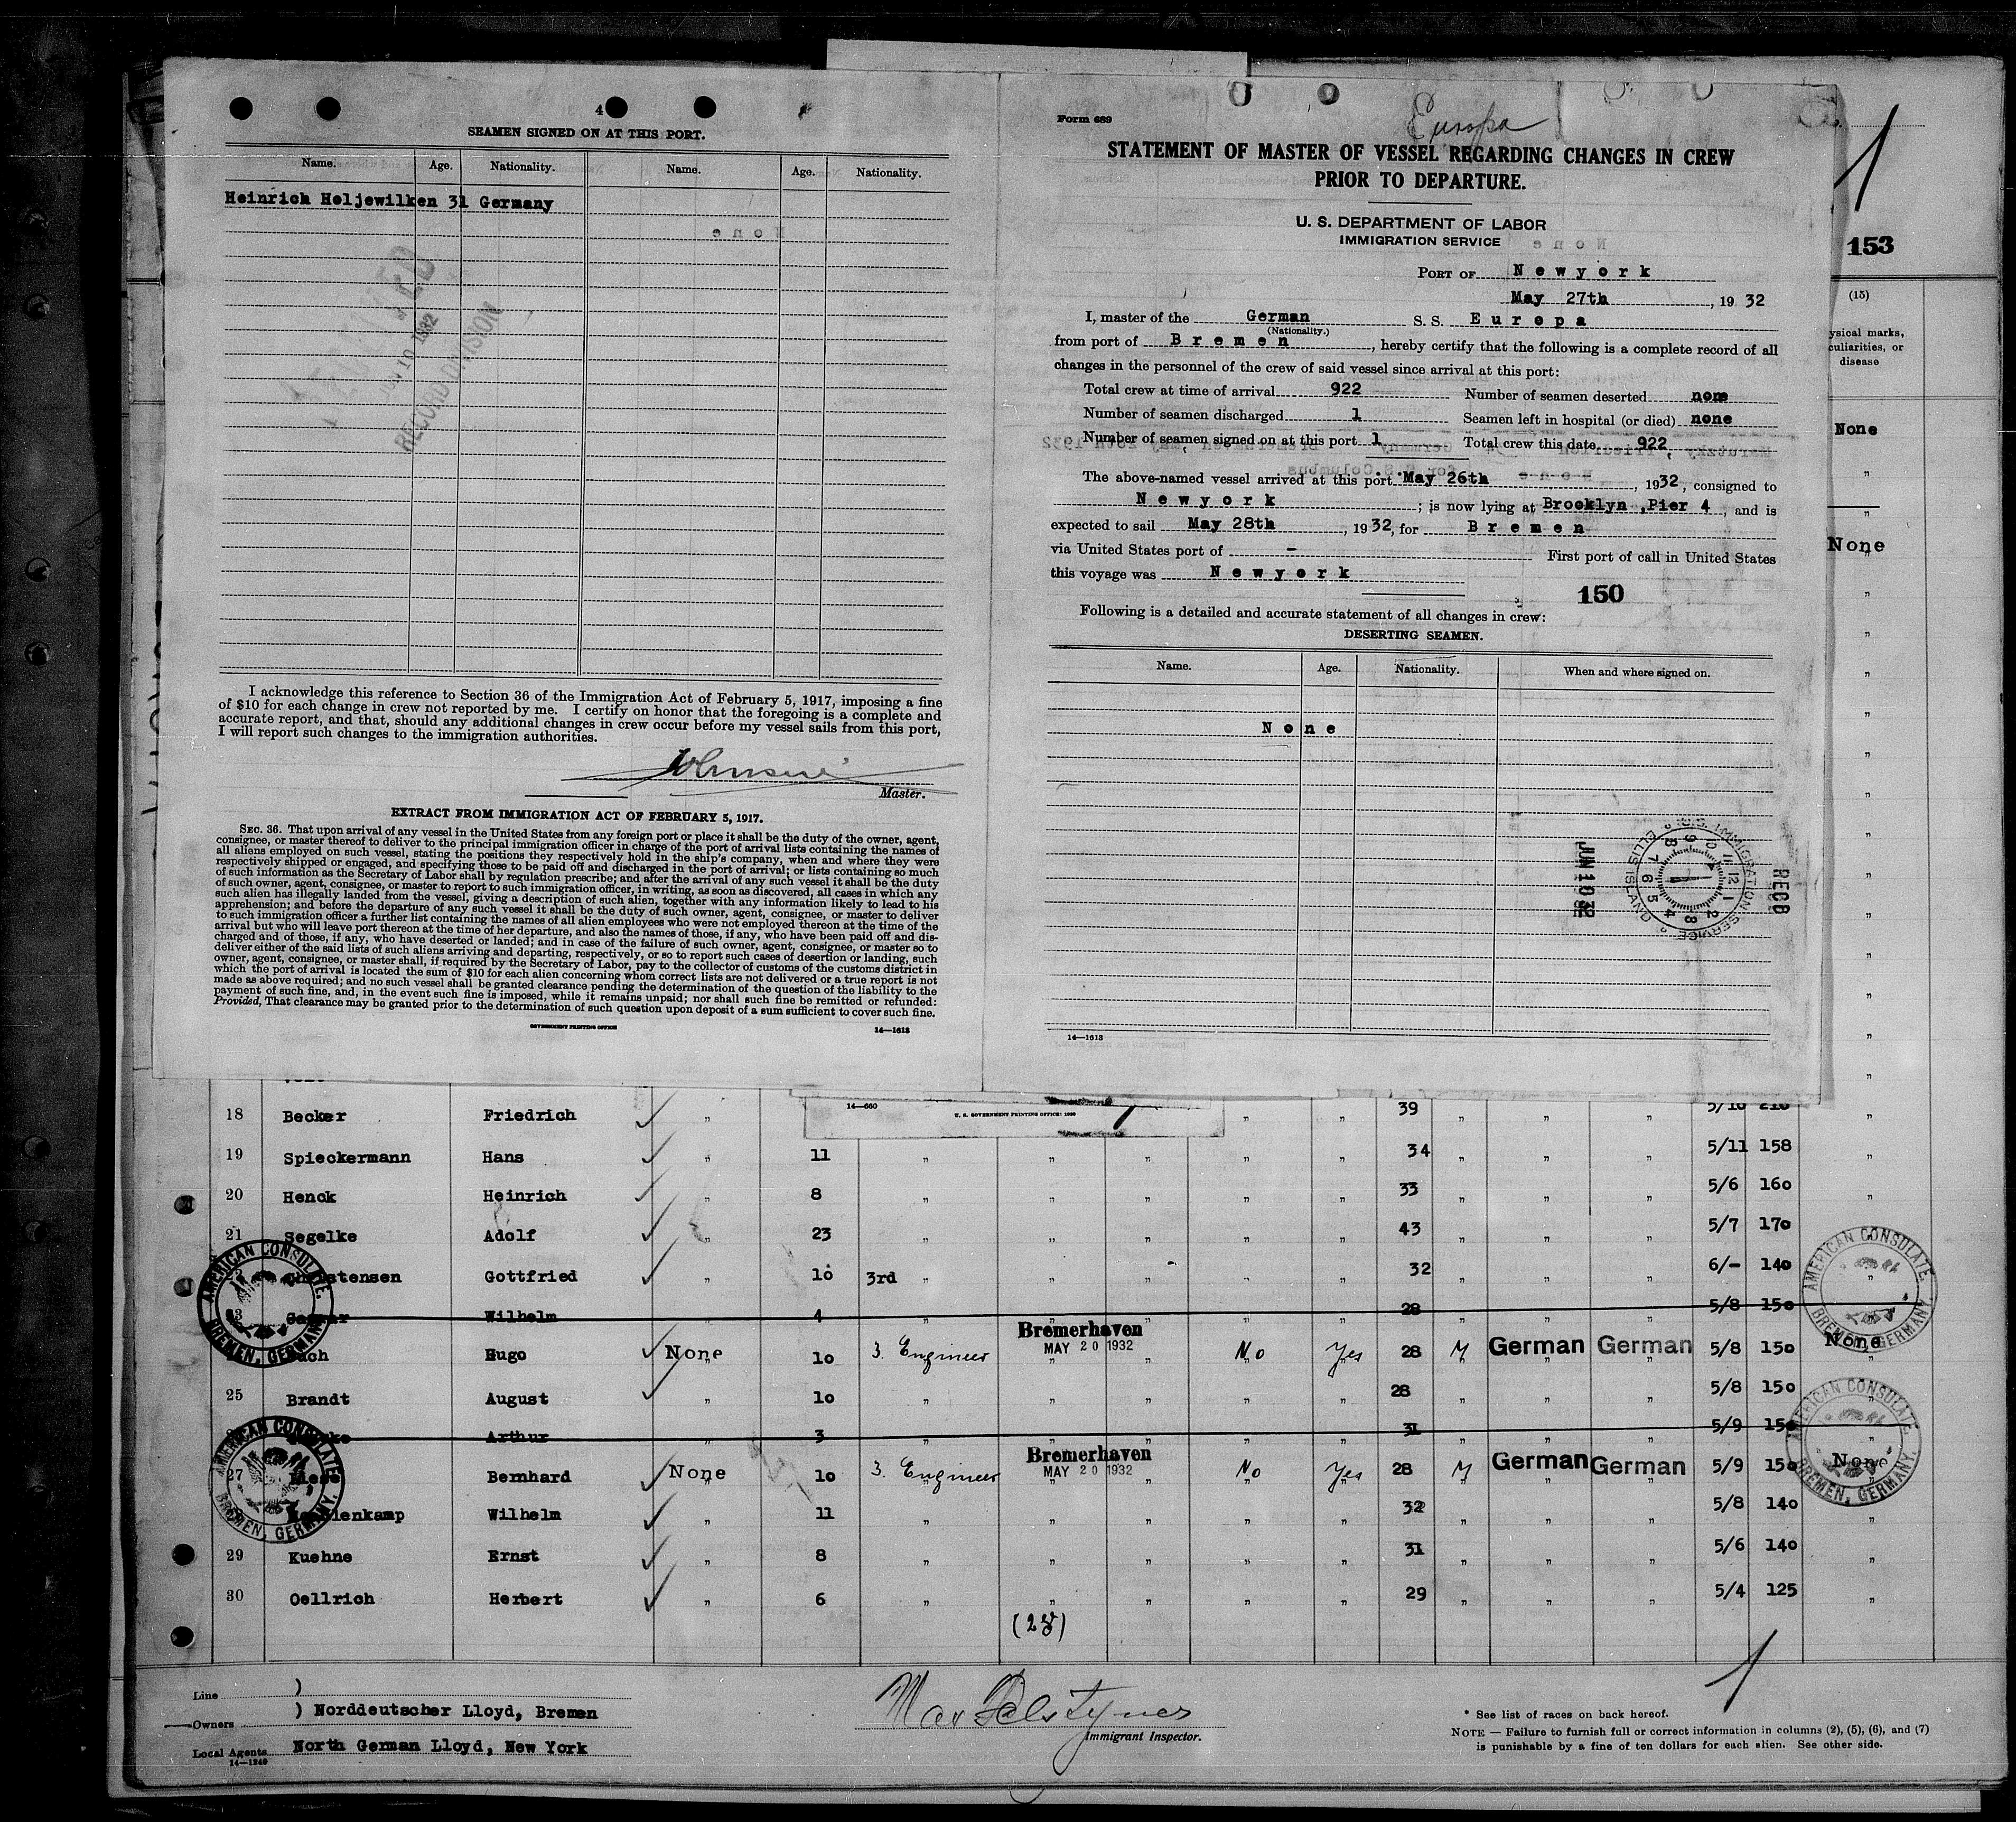 4
SEAMEN SIGNED ON AT THIS PORT.
Name. Age. Nationality. Name. Age. Nationality.
Heinrich Holjewilken 31 Germany
RECORD DIVISION
I acknowledge this reference to Section 36 of the Immigration Act of February 5, 1917, imposing a fine
of $10 for each change in crew not reported by me. I certify on honor that the foregoing is a complete and
accurate report, and that, should any additional changes in crew occur before my vessel sails from this port,
I will report such changes to the immigration authorities.
Master.
EXTRACT FROM IMMIGRATION ACT OF FEBRUARY 5, 1917.
SEC. 36. That upon arrival of any vessel in the United States from any foreign port or place it shall be the duty of the owner, agent,
consignee, or master thereof to deliver to the principal immigration officer in charge of the port of arrival lists containing the names of
all aliens employed on such vessel, stating the positions they respectively hold in the ship's company, when and where they were
respectively shipped or engaged, and specifying those to be paid off and discharged in the port of arrival; or lists containing so much
of such information as the Secretary of Labor shall by regulation prescribe; and after the arrival of any such vessel it shall be the duty
of such owner, agent, consignee, or master to report to such immigration officer, in writing, as soon as discovered, all cases in which any
such alien has illegally landed from the vessel, giving a description of such alien, together with any information likely to lead to his
apprehension; and before the departure of any such vessel it shall be the duty of such owner, agent, consignee, or master to deliver
to such immigration officer a further list containing the names of all alien employees who were not employed thereon at the time of the
arrival but who will leave port thereon at the time of her departure, and also the names of those, if any, who have been paid off and dis-
charged and of those, if any, who have deserted or landed; and in case of the failure of such owner, agent, consignee, or master so to
deliver either of the said lists of such aliens arriving and departing, respectively, or so to report such cases of desertion or landing, such
owner, agent, consignee, or master shall, if required by the Secretary of Labor, pay to the collector of customs of the customs district in
which the port of arrival is located the sum of $10 for each alien concerning whom correct lists are not delivered or a true report is not
made as above required; and no such vessel shall be granted clearance pending the determination of the question of the liability to the
payment of such fine, and, in the event such fine is imposed, while it remains unpaid; nor shall such fine be remitted or refunded:
Provided, That clearance may be granted prior to the determination of such question upon deposit of a sum sufficient to cover such fine.
GOVERNMENT PRINTING OFFICE 14—1613
Form 689
Europa
STATEMENT OF MASTER OF VESSEL REGARDING CHANGES IN CREW
PRIOR TO DEPARTURE.
U. S. DEPARTMENT OF LABOR
IMMIGRATION SERVICE
PORT OF Newyork
May 27th, 1932
I, master of the German S. S. Europa
(Nationality.)
from port of Bremen, hereby certify that the following is a complete record of all
changes in the personnel of the crew of said vessel since arrival at this port:
Total crew at time of arrival 922 Number of seamen deserted none
Number of seamen discharged 1 Seamen left in hospital (or died) none
Number of seamen signed on at this port 1 Total crew this date 922
The above-named vessel arrived at this port May 26th, 1932, consigned to
Newyork; is now lying at Brooklyn, Pier 4, and is
expected to sail May 28th, 1932, for Bremen
via United States port of - First port of call in United States
this voyage was Newyork
150
Following is a detailed and accurate statement of all changes in crew:
DESERTING SEAMEN.
Name. Age. Nationality. When and where signed on.
None
U.S. IMMIGRATION SERVICE ELLIS ISLAND
RECD
JUN 10 32
14—1613
1
153
(15)
ysical marks,
culiarities, or
disease
None
"
"
None
14—660 U. S. GOVERNMENT PRINTING OFFICE: 1930
18 Becker Friedrich " " " 39 " " " 5/10 210 "
19 Spieckermann Hans " 11 " " " " " 34 " " " 5/11 158 "
20 Henck Heinrich " 8 " " " " " 33 " " " 5/6 160 "
21 Segelke Adolf " 23 " " " " " 43 " " " 5/7 170 "
Christensen Gottfried " 10 3rd " " " " " 32 " " " 6/- 140 "
Wilhelm 4 28 5/8 150
Hugo None 10 3. Engineer Bremerhaven MAY 20 1932 No Yes 28 M German German 5/8 150 None
25 Brandt August " 10 " " " " " 28 " " " 5/8 150 "
Arthur 3 31 5/9 150
27 Bernhard None 10 3. Engineer Bremerhaven MAY 20 1932 No Yes 28 M German German 5/9 150 None
Wilhelm " 11 " " " " " 32 " " " 5/8 140 "
29 Kuehne Ernst " 8 " " " " " 31 " " " 5/6 140 "
30 Oellrich Herbert " 6 " " " " " 29 " " " 5/4 125 "
AMERICAN CONSULATE. BREMEN, GERMANY.
AMERICAN CONSULATE. BREMEN, GERMANY.
AMERICAN CONSULATE. BREMEN, GERMANY.
AMERICAN CONSULATE. BREMEN, GERMANY.
Line )
Owners ) Norddeutscher Lloyd, Bremen
Local Agents North German Lloyd, New York
14—1240
Immigrant Inspector.
* See list of races on back hereof.
NOTE — Failure to furnish full or correct information in columns (2), (5), (6), and (7)
is punishable by a fine of ten dollars for each alien. See other side.